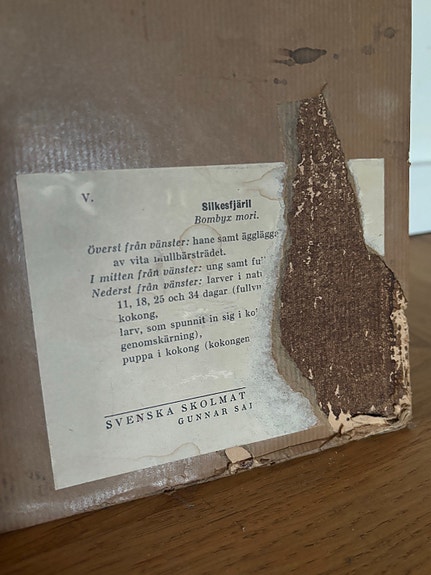 V.
Silkesfjäril
Bombyx mori.
Överst från vänster: hane samt ägglägga
av vita mullbärsträdet.
I mitten från vänster: ung samt ful
Nederst från vänster: larver i natu
11, 18, 25 och 34 dagar (fullv
kokong,
larv, som spunnit in sig i ko
genomskärning),
puppa i kokong (kokongen
SVENSKA SKOLMAT
GUNNAR SA